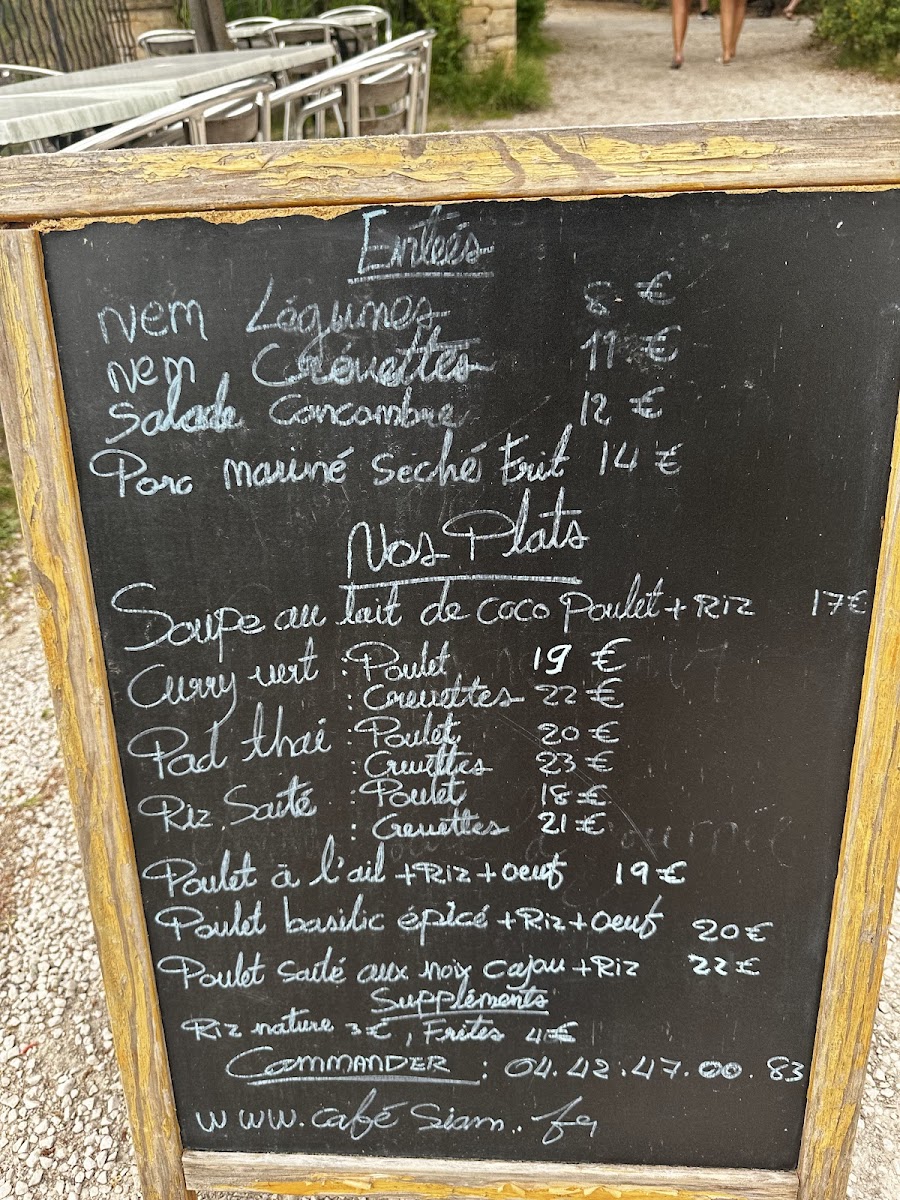 Entrées
Nem Légumes 8 €
Nem Crevettes 11 €
Salade Concombre 12 €
Porc mariné Seché Frit 14 €
Nos Plats
Soupe au lait de coco Poulet + Riz 17€
Curry vert : Poulet 19 €
: Crevettes 22 €
Pad thai : Poulet 20 €
: Crevettes 23 €
Riz Sauté : Poulet 18 €
: Crevettes 21 €
Poulet à l'ail + Riz + Oeuf 19 €
Poulet basilic épicé + Riz + Oeuf 20 €
Poulet sauté aux noix cajou + Riz 22 €
Suppléments
Riz nature 3€, Frites 4€
COMMANDER : 04.42.47.00.83
www.café Siam.fr